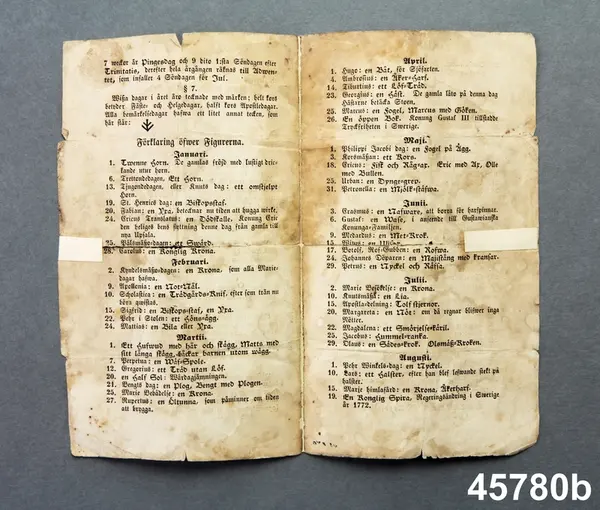 7 weckor är Pingesdag och 9 dito 1:sta Söndagen efter
Trinitatis, derefter hela årgången räknas till Adwen-
tet, som infaller 4 Söndagen för Jul.
§ 7.
Wissa dagar i året äro tecknade med märken; helt kors
betyder Fäste- och Helgedagar, halft kors Apostledagar.
Alla bemärkelsedagar hafwa ett litet annat tecken, som
här står:
Förklaring öfwer Figurerna.
Januari.
1. Twenne Horn. De gamlas fröjd med lustigt dric-
kande utur horn.
6. Trettondedagen. Ett Horn.
13. Tjugondedagen, eller Knuts dag: ett omstjelpt
Horn.
19. St. Henrics dag: en Biskopsstaf.
20. Fabian: en Yxa, betecknar nu tiden att hugga wirke.
24. Ericus Translatus: en Dödskalle. Konung Eric
den heliges bens flyttning denne dag från gamla till
nya Upsala.
25. Pålsmässo-dagen: ett Swärd.
28. Carolus: en Konglig Krona.
Februari.
2. Kyndelsmässo-dagen: en Krona, som alla Marie-
dagar hafwa.
9. Apollonia: en Not-Nål.
10. Scholastica: en Trädgårds-Knif, efter som trän nu
böra qwistas.
15. Sigfrid: en Biskops-staf, en Yxa.
22. Pehr i Stolen: ett Höns-ägg.
24. Mattias: en Bila eller Yxa.
Martii.
1. Ett Hufwud med hår och skägg, Matts med
sitt långa skägg, läckar barnen utom wägg.
7. Perpetua: en Wäf-Spole.
12. Gregorius: ett Träd utan Löf.
20. en Half Sol: Wårdagjämningen.
21. Bengts dag: en Plog, Bengt med Plogen.
25. Marie Bebådelse: en Krona.
27. Rupertus: en Öltunna, som påminner om tiden
att brygga.
April.
1. Hugo: en Båt, för Sjöfarten.
4. Ambrosius: en Åker-Harf.
14. Tiburtius: ett Löf-Träd.
23. Georgius: en Häst. De gamla läto på denna dag
Hästarne beträda Skoen.
25. Marcus: en Fogel, Marcus med Göken.
26. En öppen Bok. Konung Gustaf III tillstadde
Tryckfriheten i Swerige.
Maji.
1. Philippi Jacobi dag: en Fogel på Ägg.
3. Korsmässan: ett Kors.
18. Ericus: Fisk och Råg-ax. Eric med Ax, Olle
med Bullen.
25. Urban: en Dynge-grep.
31. Petronella: en Mjölk-stäfwa.
Junii.
3. Erasmus: en Nafware, att borra för harspinnar.
6. Gustaf: en Wase, i anseende till Gustavianska
Konunga-Familjen.
9. Medardus: en Met-Krok.
15. Vitus: en
17. Botolf, Rof-Gubben: en Rofwa.
24. Johannes Döparen: en Majstång med kransar.
29. Petrus: en Nyckel och Räfsa.
Julii.
2. Marie Besökelse: en Krona.
10. Knutsmässa: en Lia.
15. Apostla-delning: Tolf stjernor.
20. Margareta: en Nöt: om då regnar blifwer inga
Nötter.
22. Magdalena: ett Smörjelse-käril.
25. Jacobus: Hummel-ranka.
29. Olaus: en Sädes-krok. Olsmäss-Kroken.
Augusti.
1. Pehr Winkels-dag: en Nyckel.
10. Lars: ett Halster, efter han blef lefwande stekt på
halster.
15. Marie himlafärd: en Krona, Åkerharf.
19. En Konglig Spira. Regeringsändring i Swerige
år 1772.
45780b